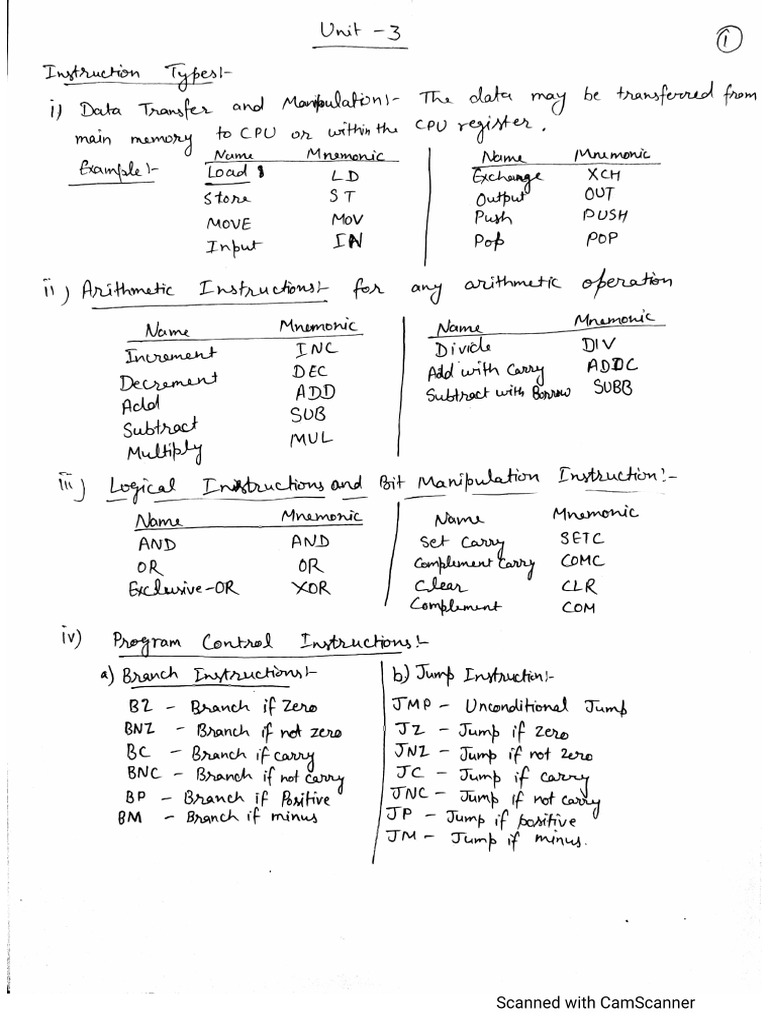 Unit - 3
1
Instruction Types:-
i) Data Transfer and Manipulation:- The data may be transferred from
main memory to CPU or within the CPU register.
Example:-
Name Mnemonic
Load LD
Store ST
MOVE MOV
Input IN
Name Mnemonic
Exchange XCH
Output OUT
Push PUSH
Pop POP
ii) Arithmetic Instructions:- for any arithmetic operation
Name Mnemonic
Increment INC
Decrement DEC
Add ADD
Subtract SUB
Multiply MUL
Name Mnemonic
Divide DIV
Add with Carry ADDC
Subtract with Borrow SUBB
iii) Logical Instructions and Bit Manipulation Instruction:-
Name Mnemonic
AND AND
OR OR
Exclusive-OR XOR
Name Mnemonic
Set Carry SETC
Complement Carry COMC
Clear CLR
Complement COM
iv) Program Control Instructions:-
a) Branch Instructions:-
BZ - Branch if Zero
BNZ - Branch if not zero
BC - Branch if carry
BNC - Branch if not carry
BP - Branch if Positive
BM - Branch if minus
b) Jump Instruction:-
JMP - Unconditional Jump
JZ - Jump if zero
JNZ - Jump if not zero
JC - Jump if carry
JNC - Jump if not carry
JP - Jump if positive
JM - Jump if minus.
Scanned with CamScanner